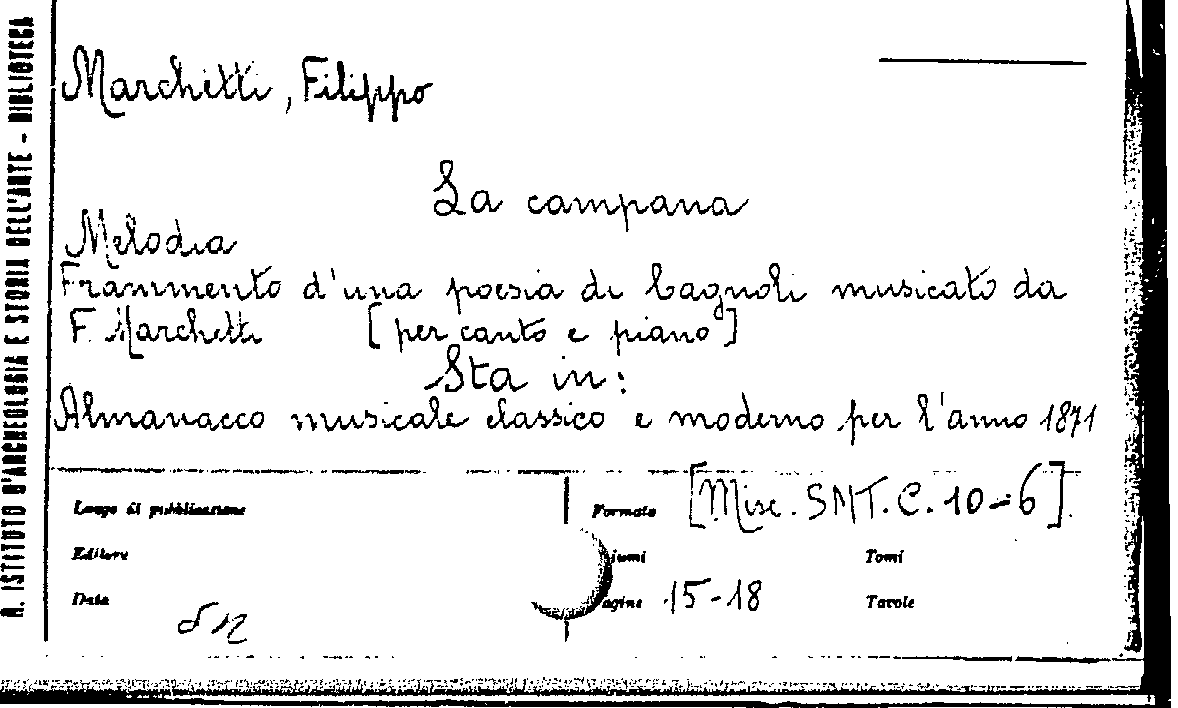 R. ISTITUTO D'ARCHEOLOGIA E STORIA DELL'ARTE - BIBLIOTECA
Marchetti, Filippo
La campana
Melodia
Frammento d'una poesia di Cagnoli musicato da
F. Marchetti [per canto e piano]
Sta in:
Almanacco musicale classico e moderno per l'anno 1871
Luogo di pubblicazione
Formato [Misc. SMT. C. 10-6]
Editore
Tomi
Data
Pagine 15-18
Tavole